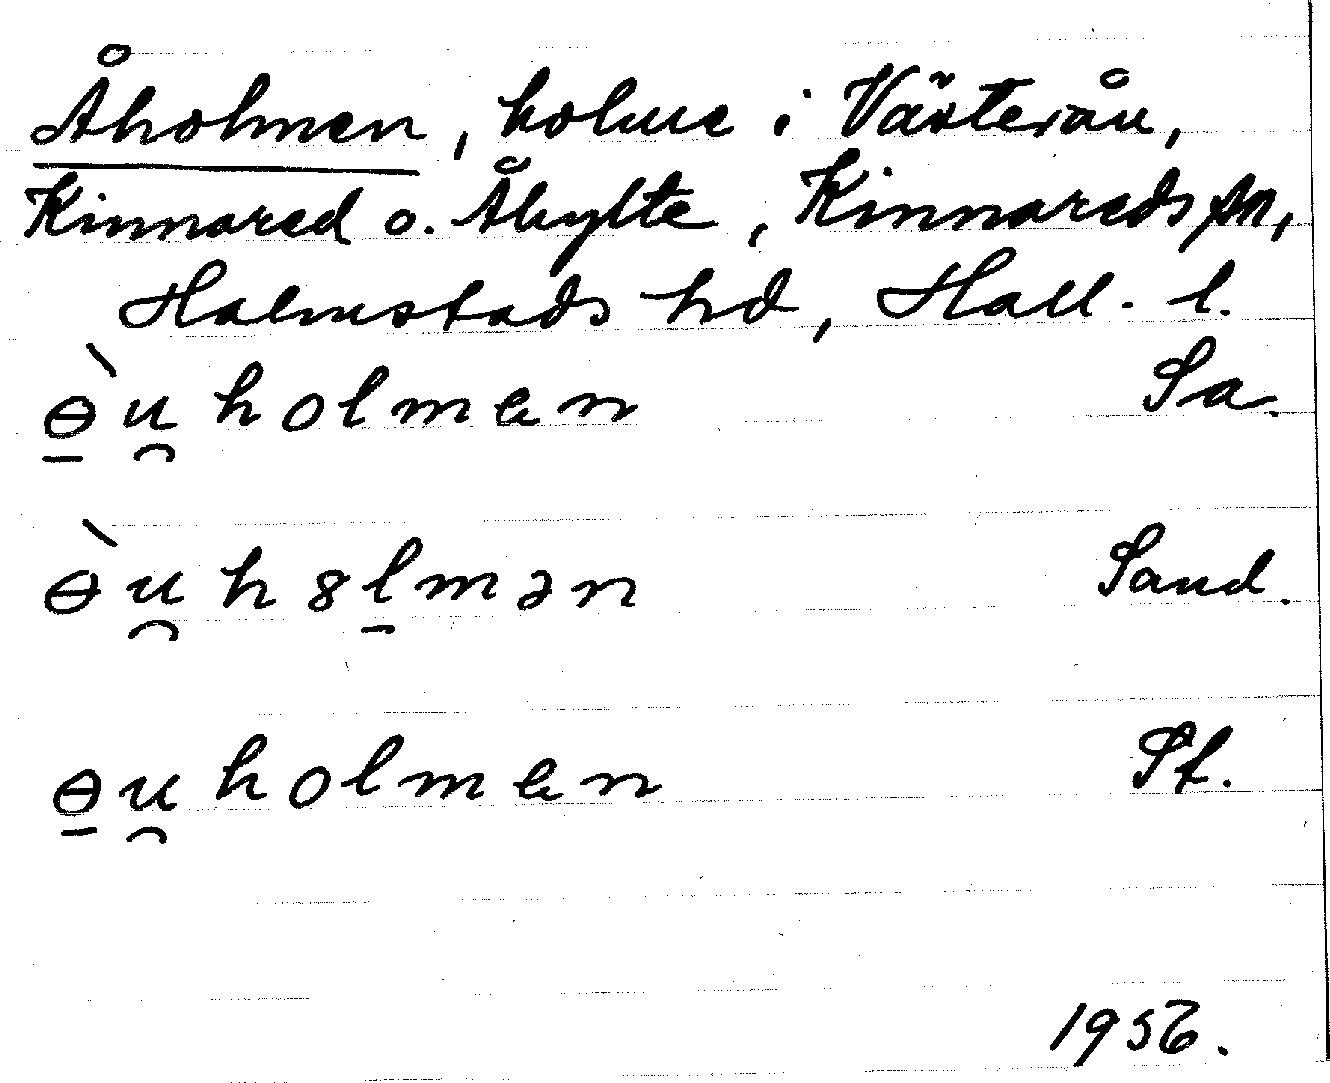 Åholmen, holme i Västerån,
Kinnared o. Åhylte, Kinnareds sn,
Halmstads hd, Hall. l.
ɵ̠̀u̯holmen Sa.
ɵ̀u̯h8l̠mən Sand.
ɵ̠u̯holmen Sf.
1956.